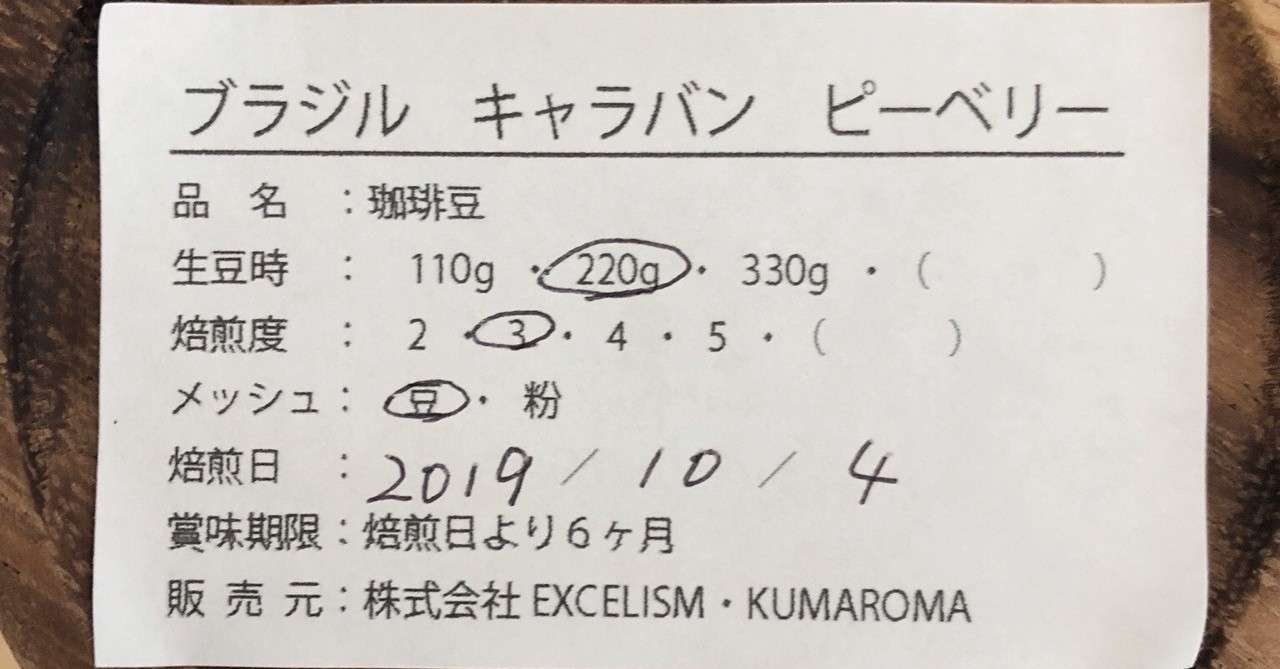 ブラジル　キャラバン　ピーベリー
品　名　：珈琲豆
生豆時　：　110g ・ 220g ・ 330g ・（　　　　）
焙煎度　：　2 ・ 3 ・ 4 ・ 5 ・（　　　）
メッシュ：　豆 ・ 粉
焙煎日　：2019 / 10 / 4
賞味期限：焙煎日より6ヶ月
販 売 元：株式会社EXCELISM・KUMAROMA